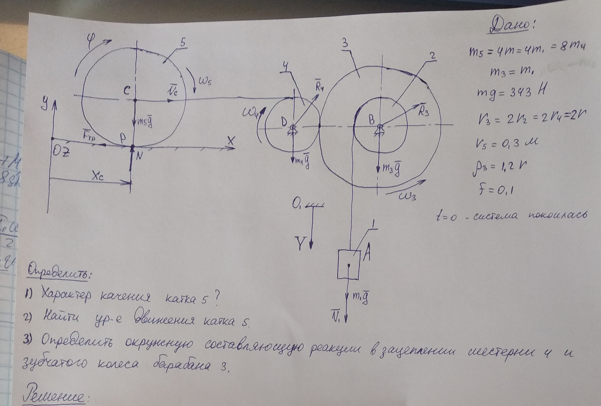 Дано:
m₅ = 4m = 4m₁ = 8m₄
m₃ = m₁
mg = 343 H
r₃ = 2r₂ = 2r₄ = 2r
r₅ = 0,3 м
ρ₃ = 1,2 r
f = 0,1
t=0 - система покоилась
φ
5
ω₅
C
V̅c
m₅g̅
y
Fтр
P
N
X
OZ
Xc
4
R̅₄
ω₄
D
m₄g̅
3
2
B
R̅₃
m₃g̅
ω₃
O₁
Y
1
A
m₁g̅
V̅₁
Определить:
1) Характер качения катка 5?
2) Найти ур-е движения катка 5.
3) Определить окружную составляющую реакции в зацеплении шестерни 4 и
зубчатого колеса барабана 3.
Решение: